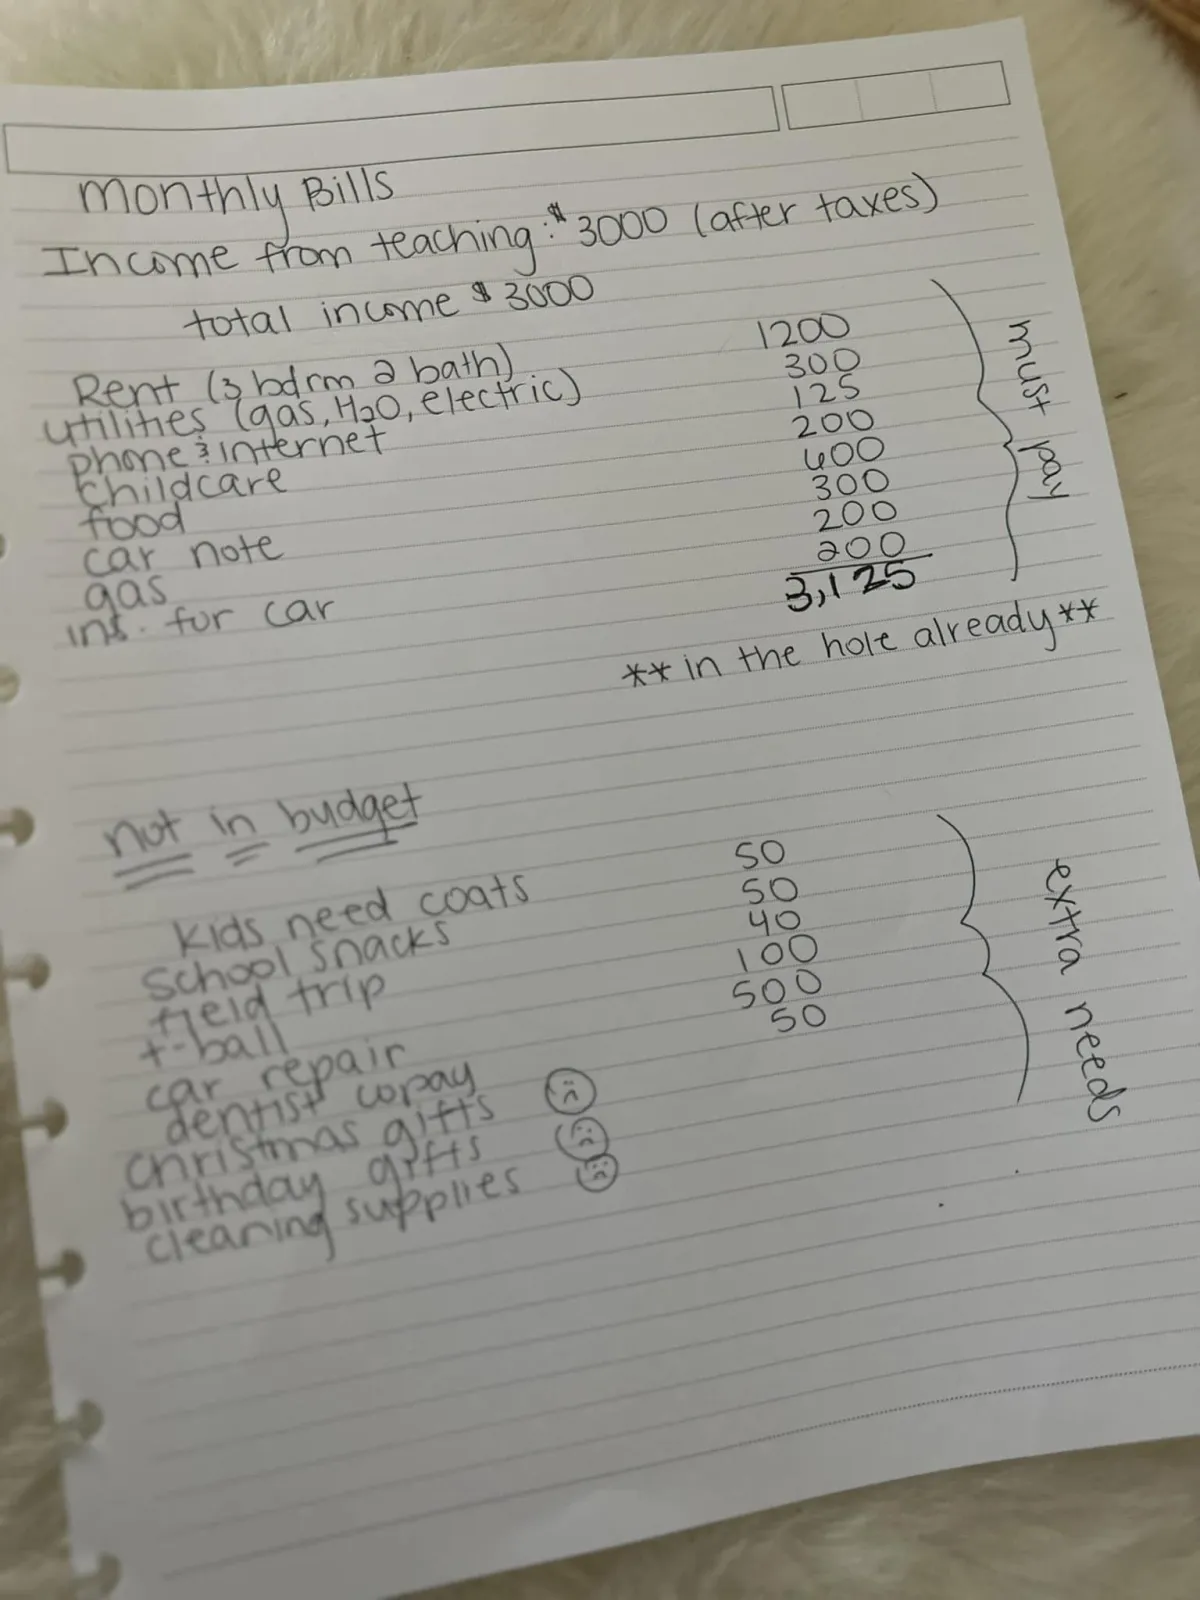 Monthly Bills
Income from teaching: $3000 (after taxes)
total income $3000
Rent (3 bdrm 2 bath) 1200
utilities (gas, H2O, electric) 300
phone & internet 125
Childcare 200
food 400
car note 300
gas 200
ins. for car 200
3,125
must pay
** in the hole already **
not in budget
kids need coats 50
school snacks 50
field trip 40
t-ball 100
car repair 500
dentist copay 50
christmas gifts
birthday gifts
cleaning supplies
extra needs